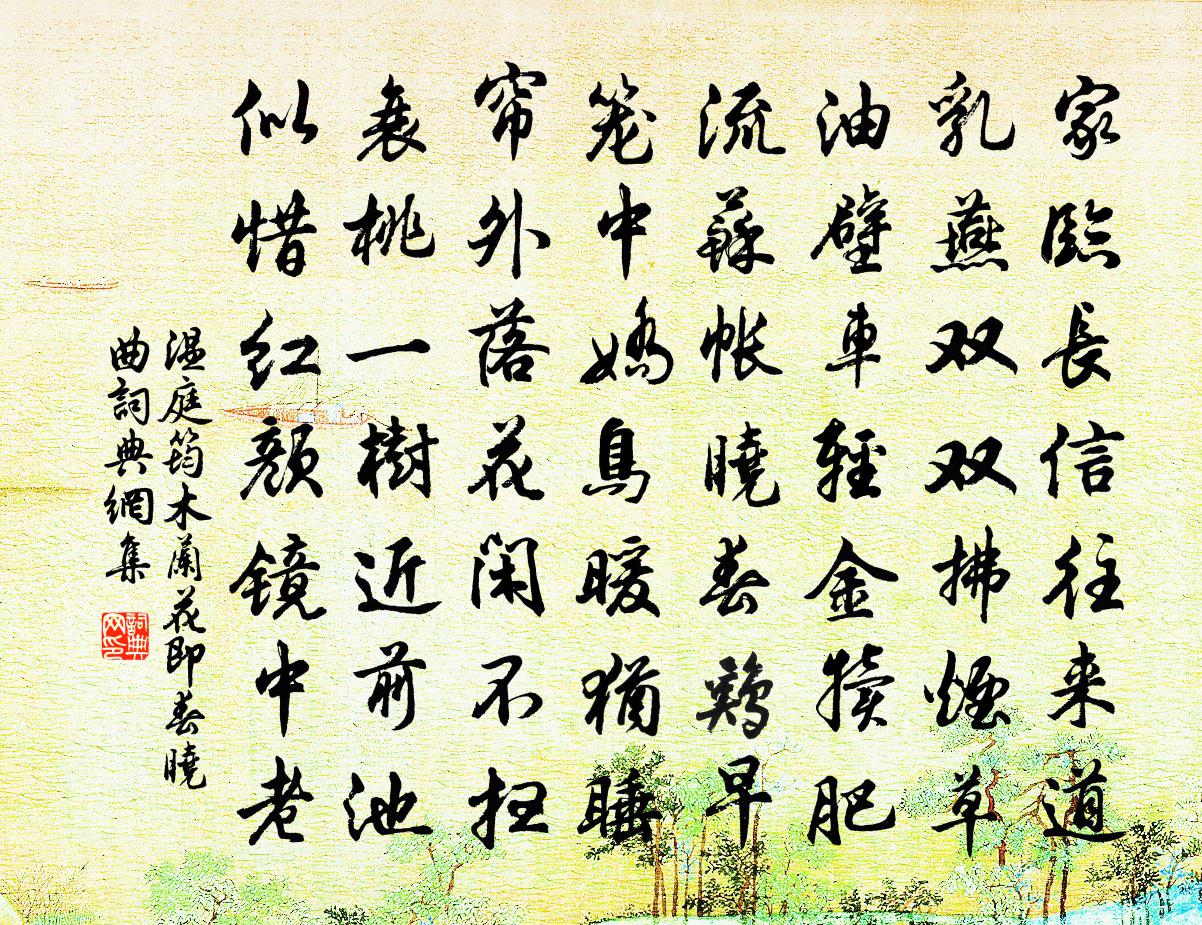 家臨長信往来道
乳燕双双拂煙草
油壁車輕金犢肥
流蘇帳曉春鷄早
笼中嬌鳥暖猶睡
帘外落花闲不扫
衰桃一樹近前池
似惜红颜镜中老
温庭筠木蘭花即春曉
曲詞典網集
詞典网印